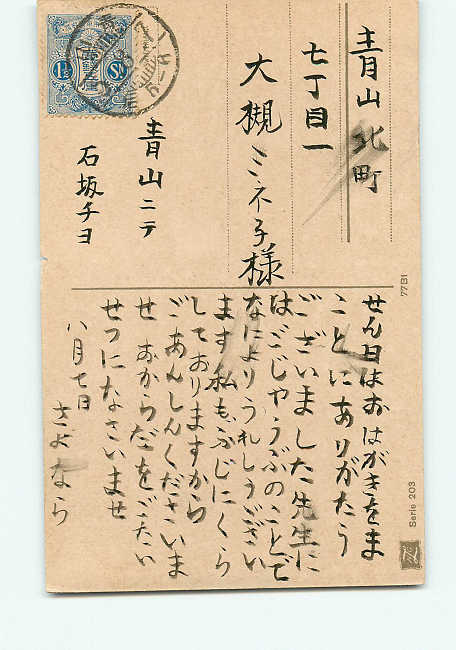 青山北町
七丁目一
大槻ミネ子様
青山ニテ
石坂チヨ
せん日はおはがきをま
ことにありがたう
ございました先生に
はごじやうぶのことで
なによりうれしうござい
ます私もぶじにくら
しておりますから
ごあんしんくださいま
せ おからだをごたい
せつになさいませ
八月七日
さよなら
77B1
Serie 203
1½ Sn